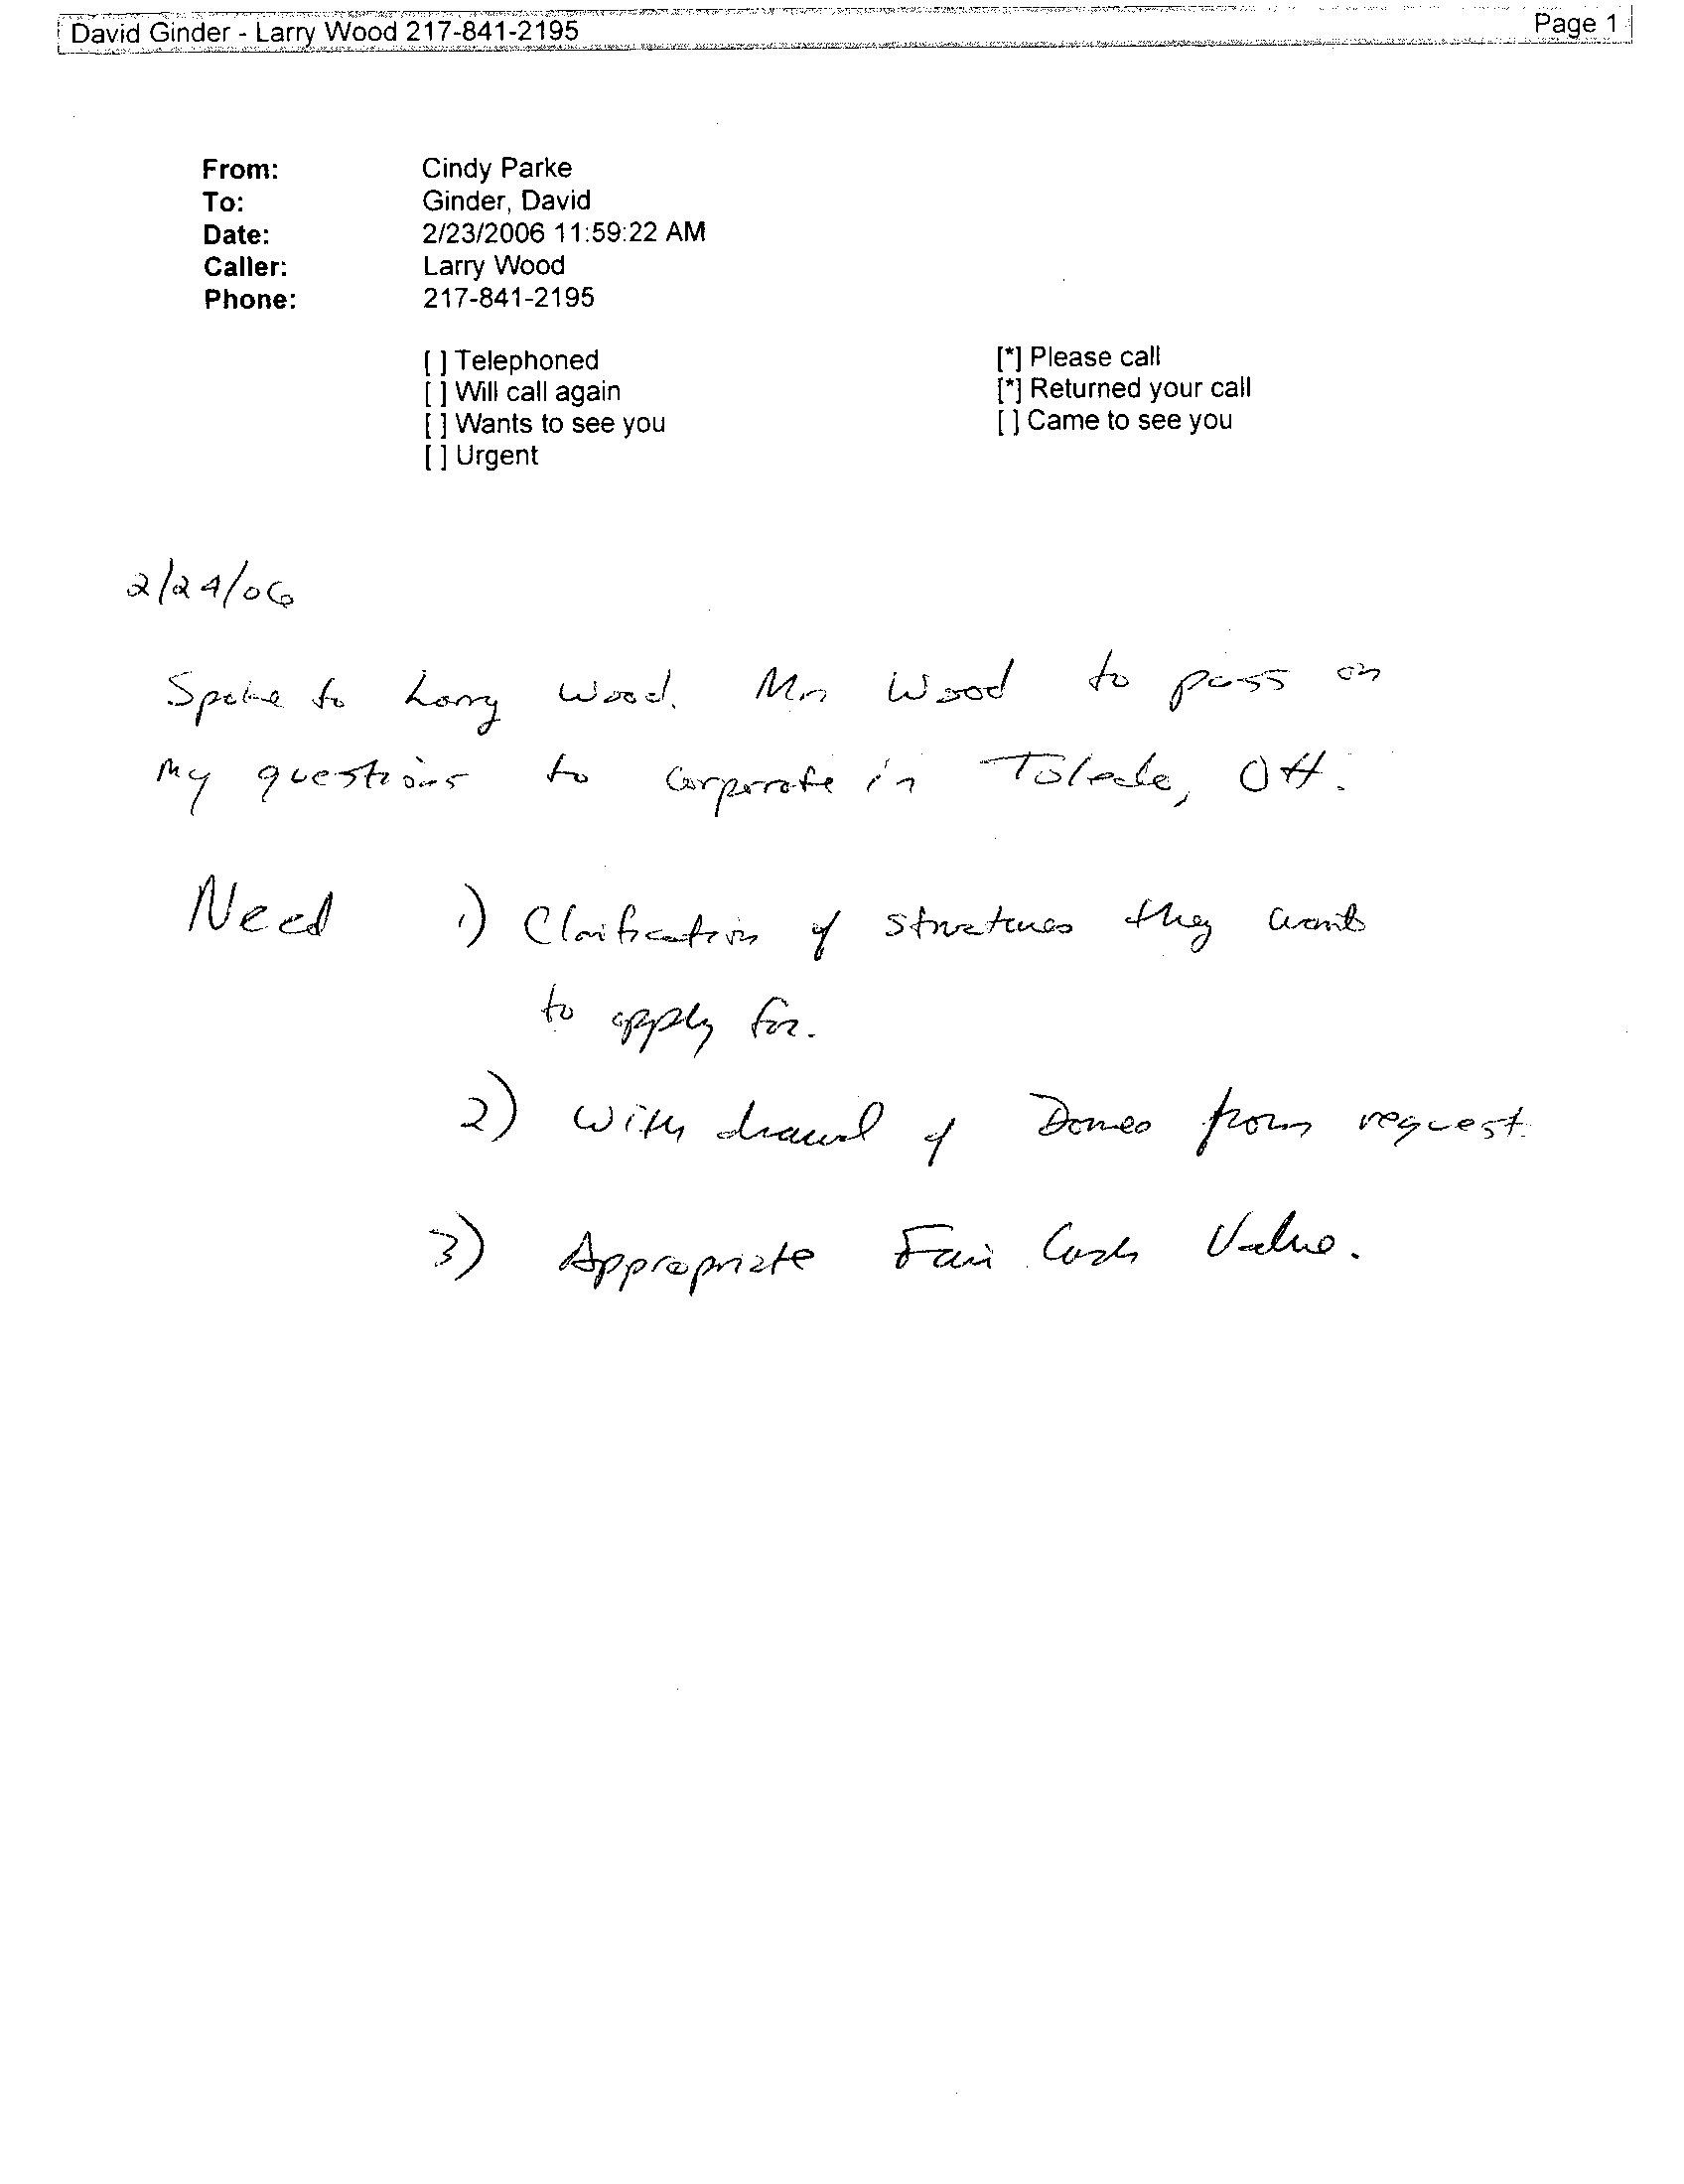 David Ginder - Larry Wood 217-841-2195 Page 1
From: Cindy Parke
To: Ginder, David
Date: 2/23/2006 11:59:22 AM
Caller: Larry Wood
Phone: 217-841-2195
[ ] Telephoned [*] Please call
[ ] Will call again [*] Returned your call
[ ] Wants to see you [ ] Came to see you
[ ] Urgent
2/24/06
Spoke to Larry Wood. Mr Wood to pass on
my questions to corporate in Toledo, OH.
Need 1) Clarification of structures they want
to apply for.
2) withdrawal of Domes from request.
3) Appropriate Fair Cash Value.